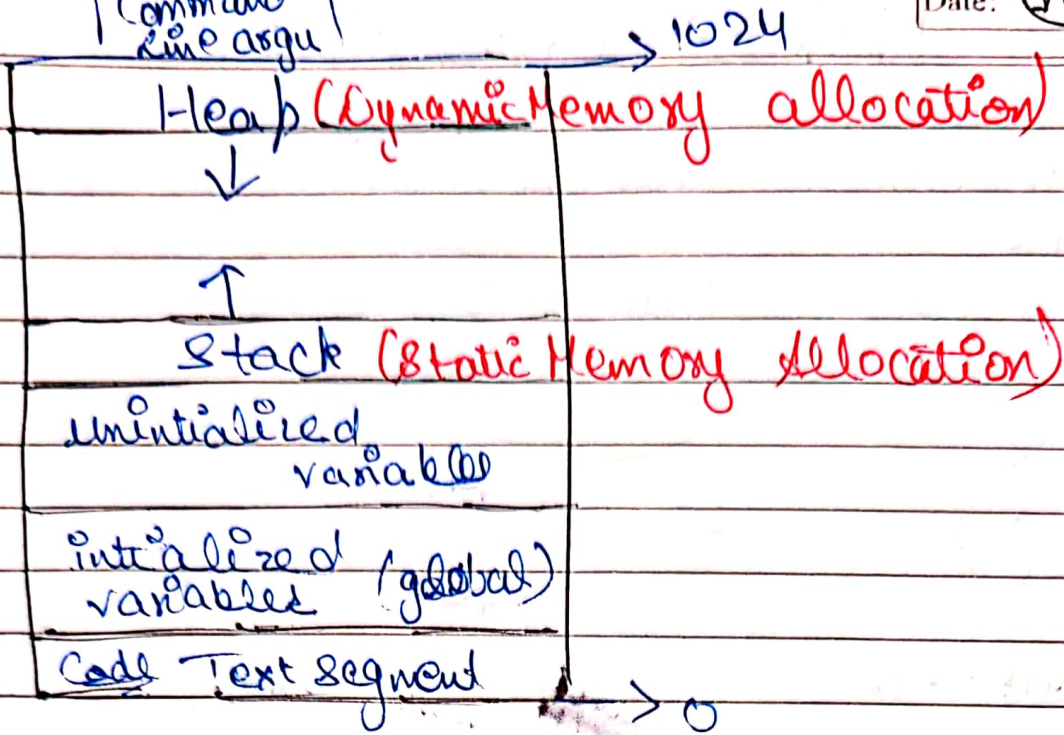 Line argu
Date:
1024
Heap (Dynamic Memory allocation)
Stack (Static Memory Allocation)
unintialized
variables
intialized
variables (global)
Code Text segment
0